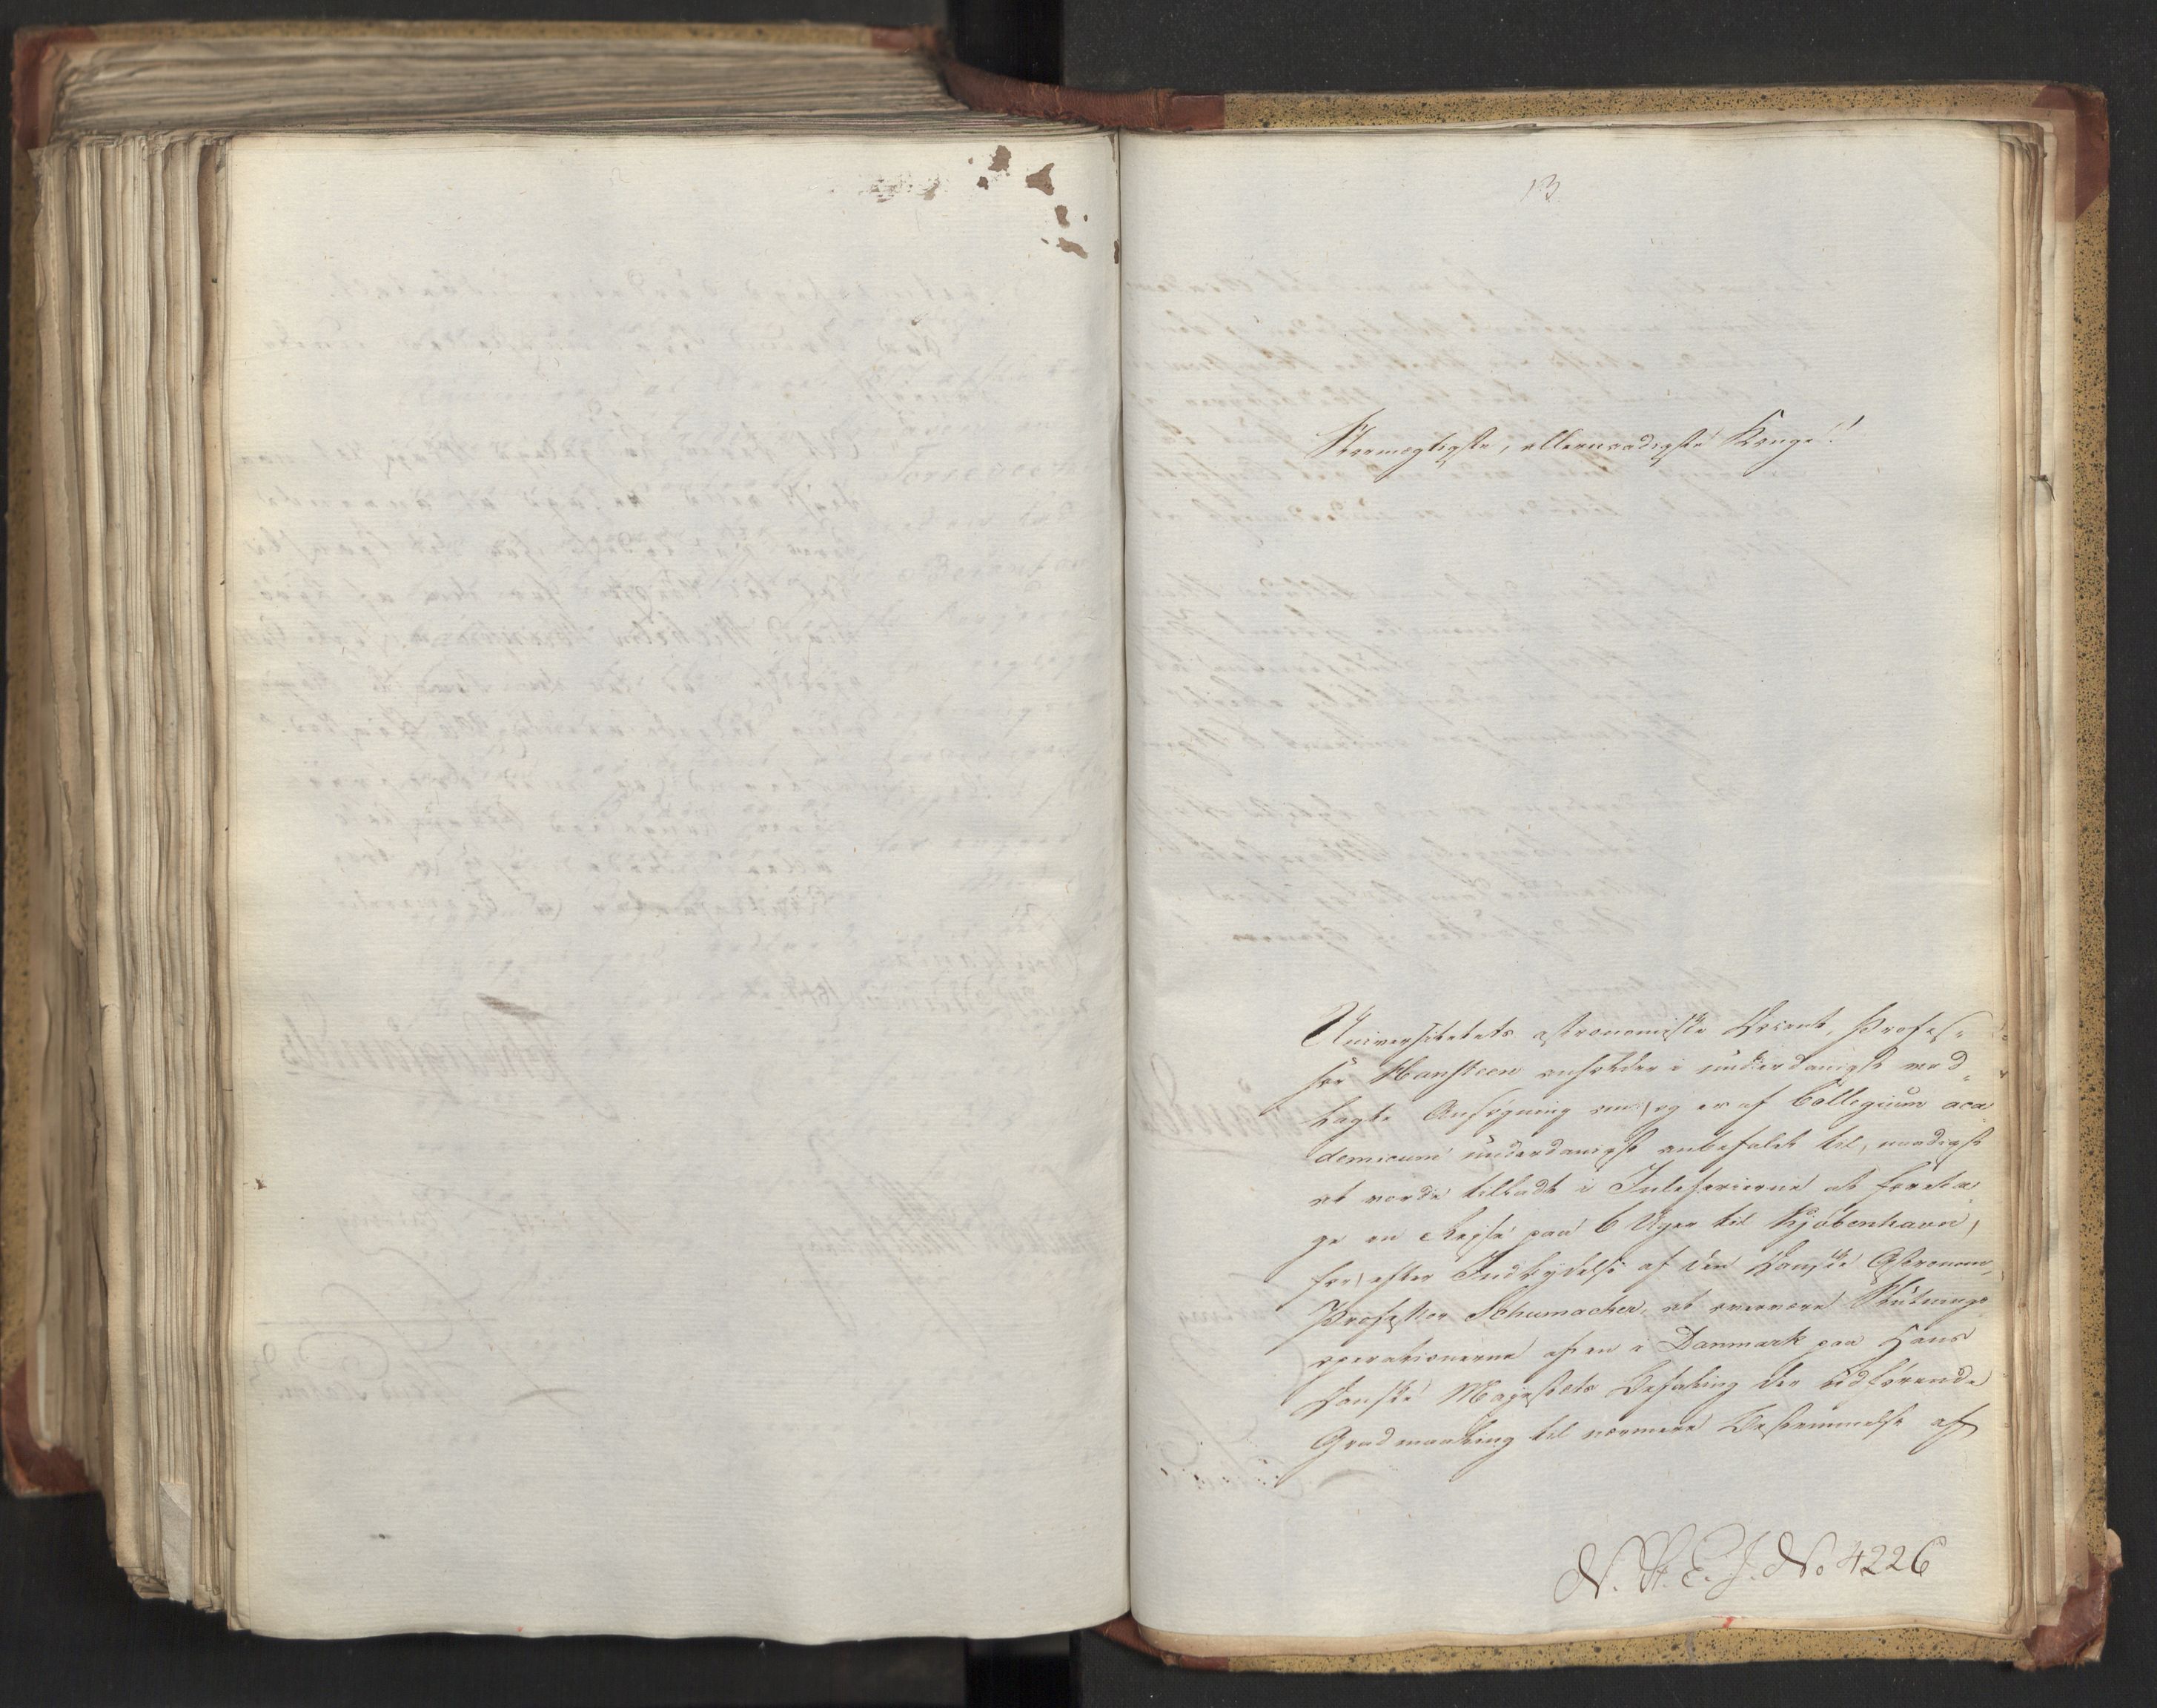 13
Stormægtigste, allernaadigste Konge!
Universitetets astronomiske Docent, Profes-
sor Hansteen anholder i underdanigst ved-
lagte Ansøgning om, og er af Collegium aca-
demicum underdanigst anbefalet til, naadigst
at vorde tilladt i Juleferierne at foreta-
ge en Rejse paa 6 Uger til Kjöbenhavn,
for, efter Indbydelse af den danske Astronom,
Professor Schumacher, at overvære Slutnings-
operationerne af en i Danmark paa Hans
Danske Majestæts Befaling der udförende
Gradmaaling til nærmere Bestemmelse af
N. St. E. J. No 4226